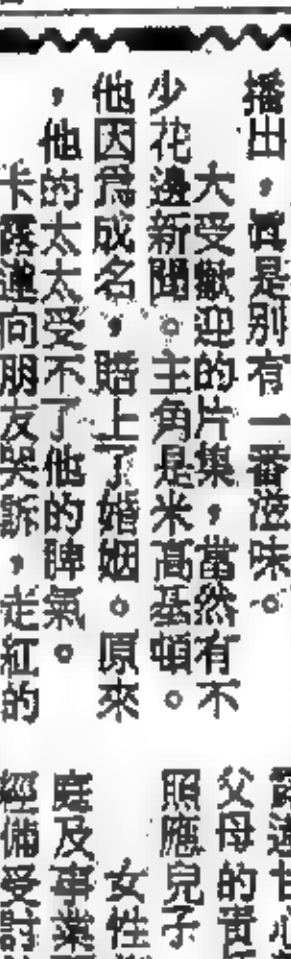 播出,眞是別有一番滋味。
大受歡迎的片集,當然有不
少花邊新聞。主角是米高基頓。
他因爲成名,賠上了婚姻。原來
,他的太太受不了他的脾氣。
卡露蓮向朋友哭訴,走紅的
父母的責
照應兒子
女性
庭及事業
經備受討